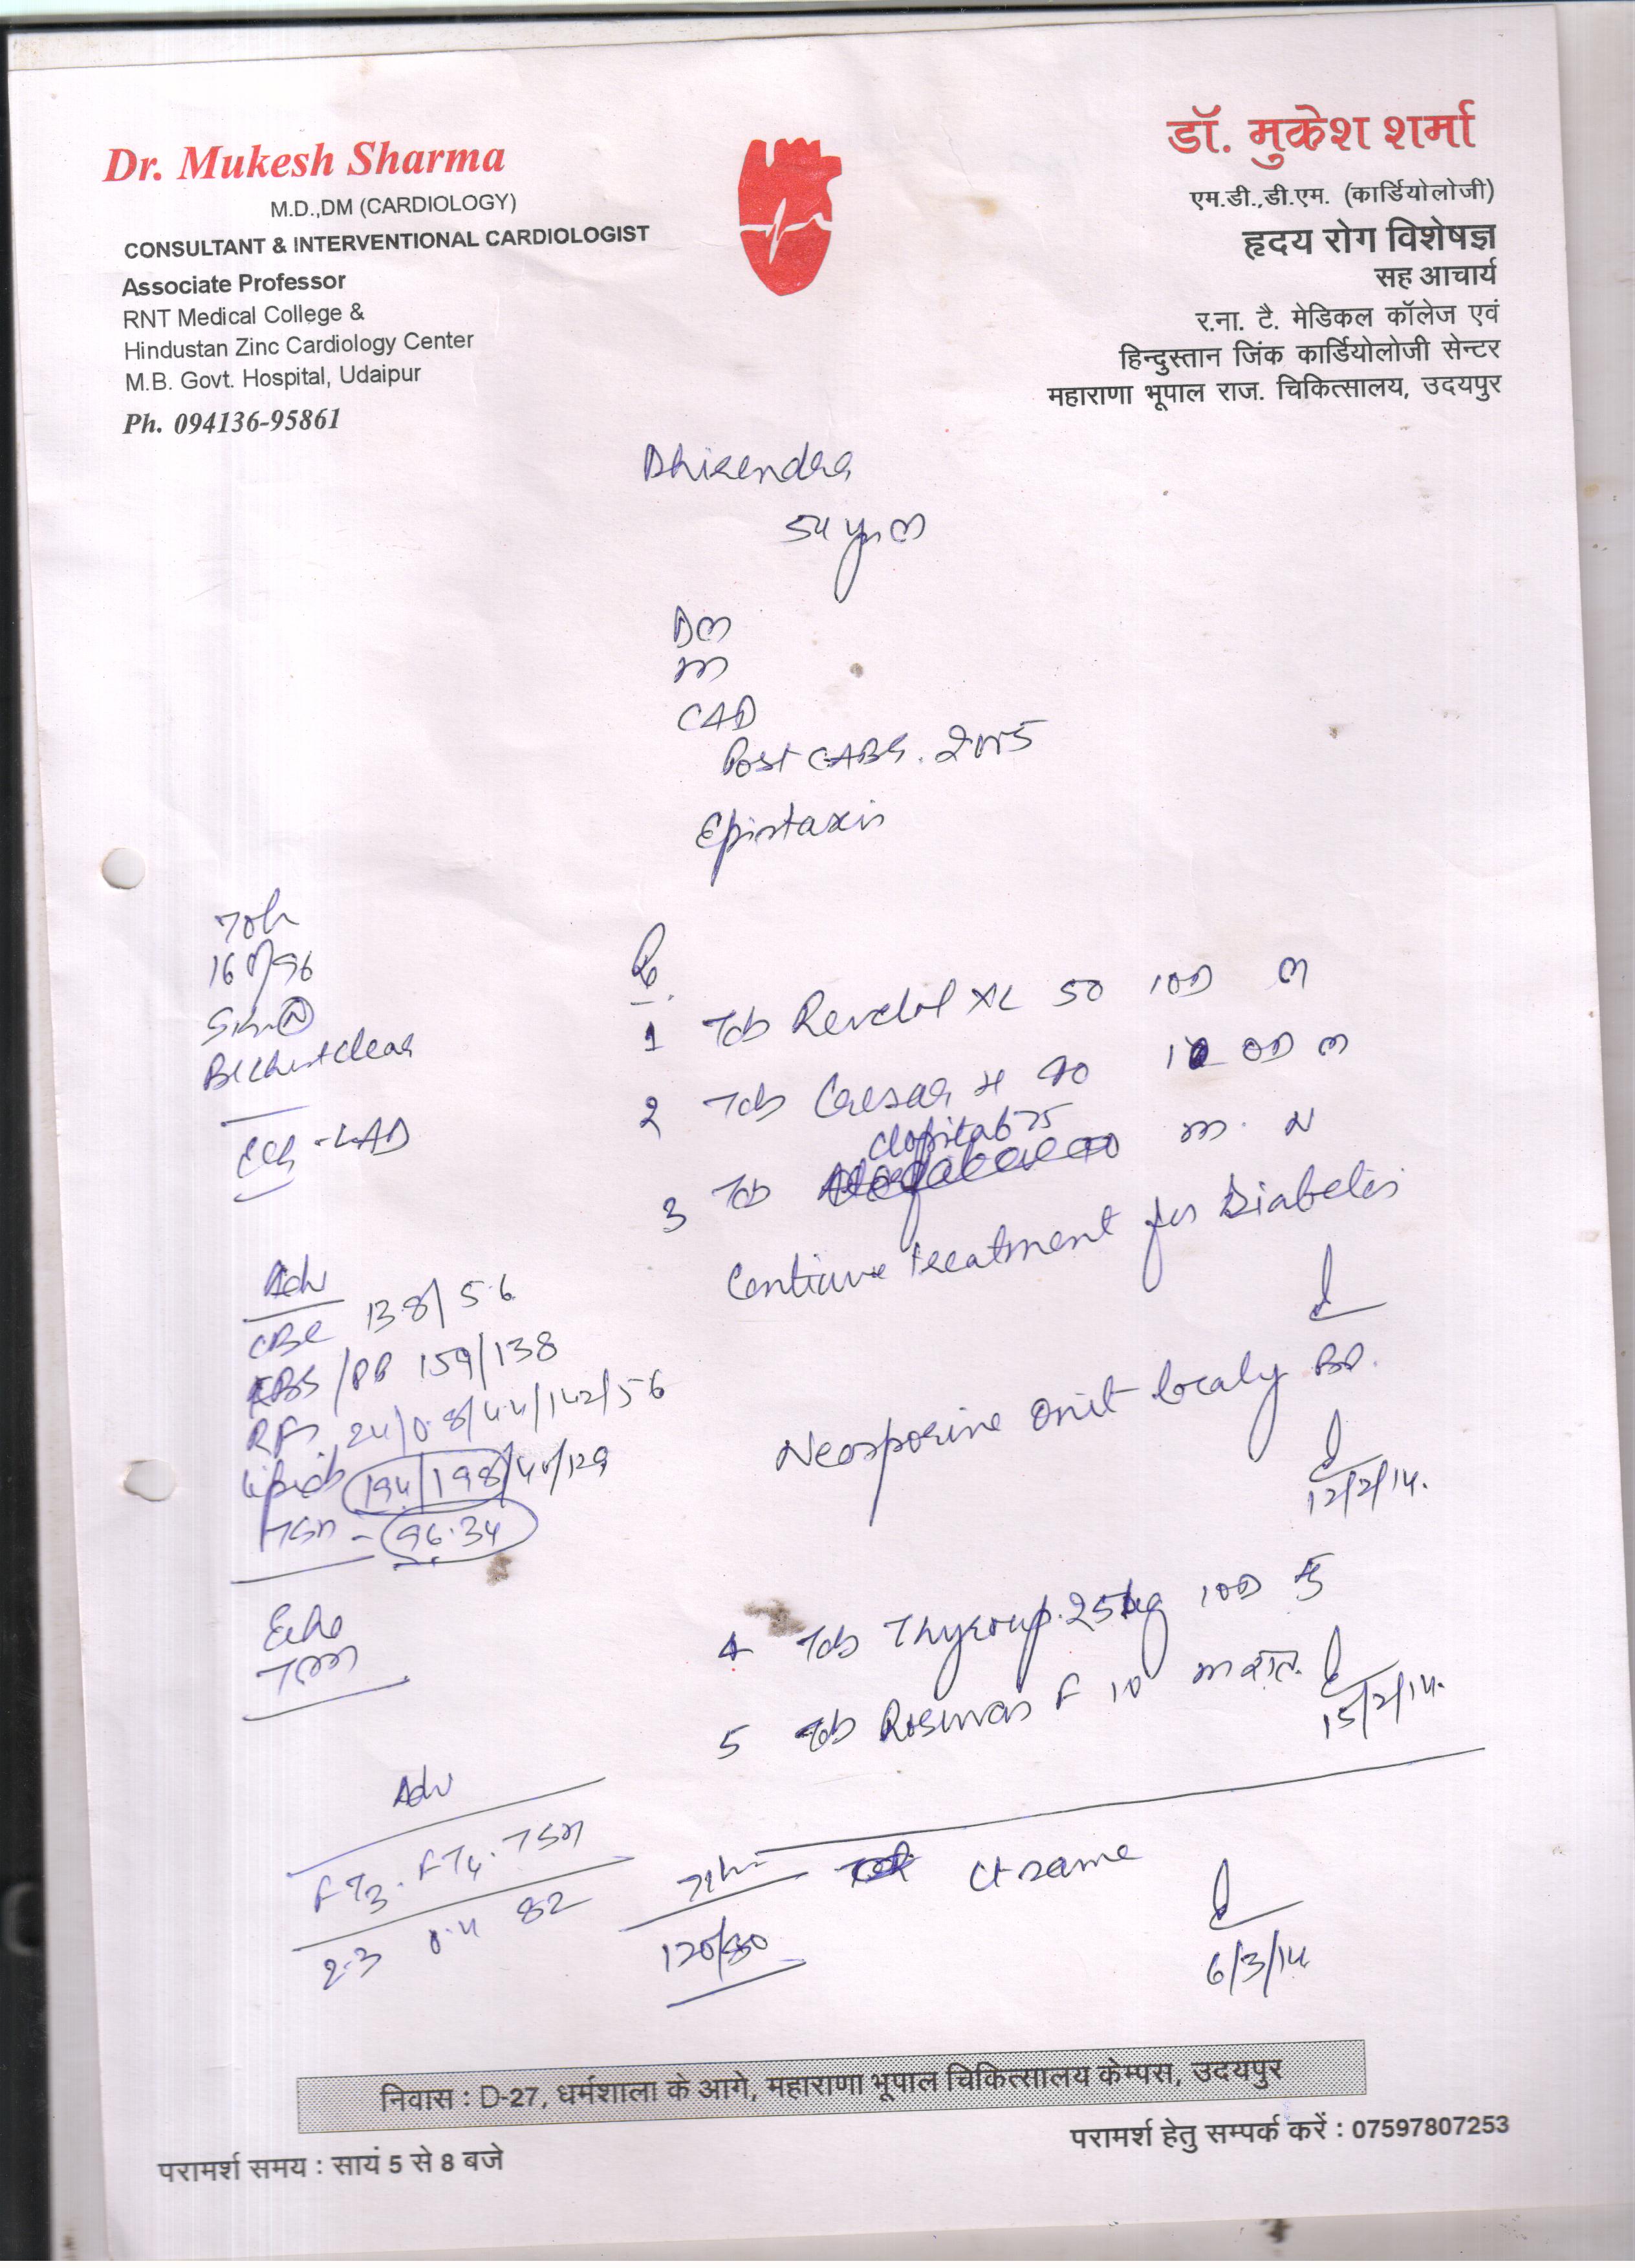 Dr. Mukesh Sharma
M.D.,DM (CARDIOLOGY)
CONSULTANT & INTERVENTIONAL CARDIOLOGIST
Associate Professor
RNT Medical College &
Hindustan Zinc Cardiology Center
M.B. Govt. Hospital, Udaipur
Ph. 094136-95861
डॉ. मुकेश शर्मा
एम.डी.,डी.एम. (कार्डियोलोजी)
हृदय रोग विशेषज्ञ
सह आचार्य
र.ना. टै. मेडिकल कॉलेज एवं
हिन्दुस्तान जिंक कार्डियोलोजी सेन्टर
महाराणा भूपाल राज. चिकित्सालय, उदयपुर
Dhirendra
54 yr M
DM
CAD
Post CABG.
Epistaxis
Chest clear
ECG - LAD
Adv
CBC 13.8/5.6
FBS/PP 159/138
RFT 24/0.8/4.4/142/5.6
Lipids 194/198/40/129
TSH - 96.34
Echo
TMT
Rx
1 Tab Revelol XL 50 1 OD M
2 Tab Cresar H 40 1 OD M
3 Tab Clopitab 75 N
Continue treatment for Diabetes
Neosporine Onit localy BD.
12/2/14.
4 Tab Thyroup 25 1 OD
5 Tab Rosuvas F 10 रात.
15/2/14.
Adv
FT3. FT4. TSH
2.3 0.4 82
120/80
Ct same
6/3/14
निवास : D-27, धर्मशाला के आगे, महाराणा भूपाल चिकित्सालय केम्पस, उदयपुर
परामर्श समय : सायं 5 से 8 बजे
परामर्श हेतु सम्पर्क करें : 07597807253